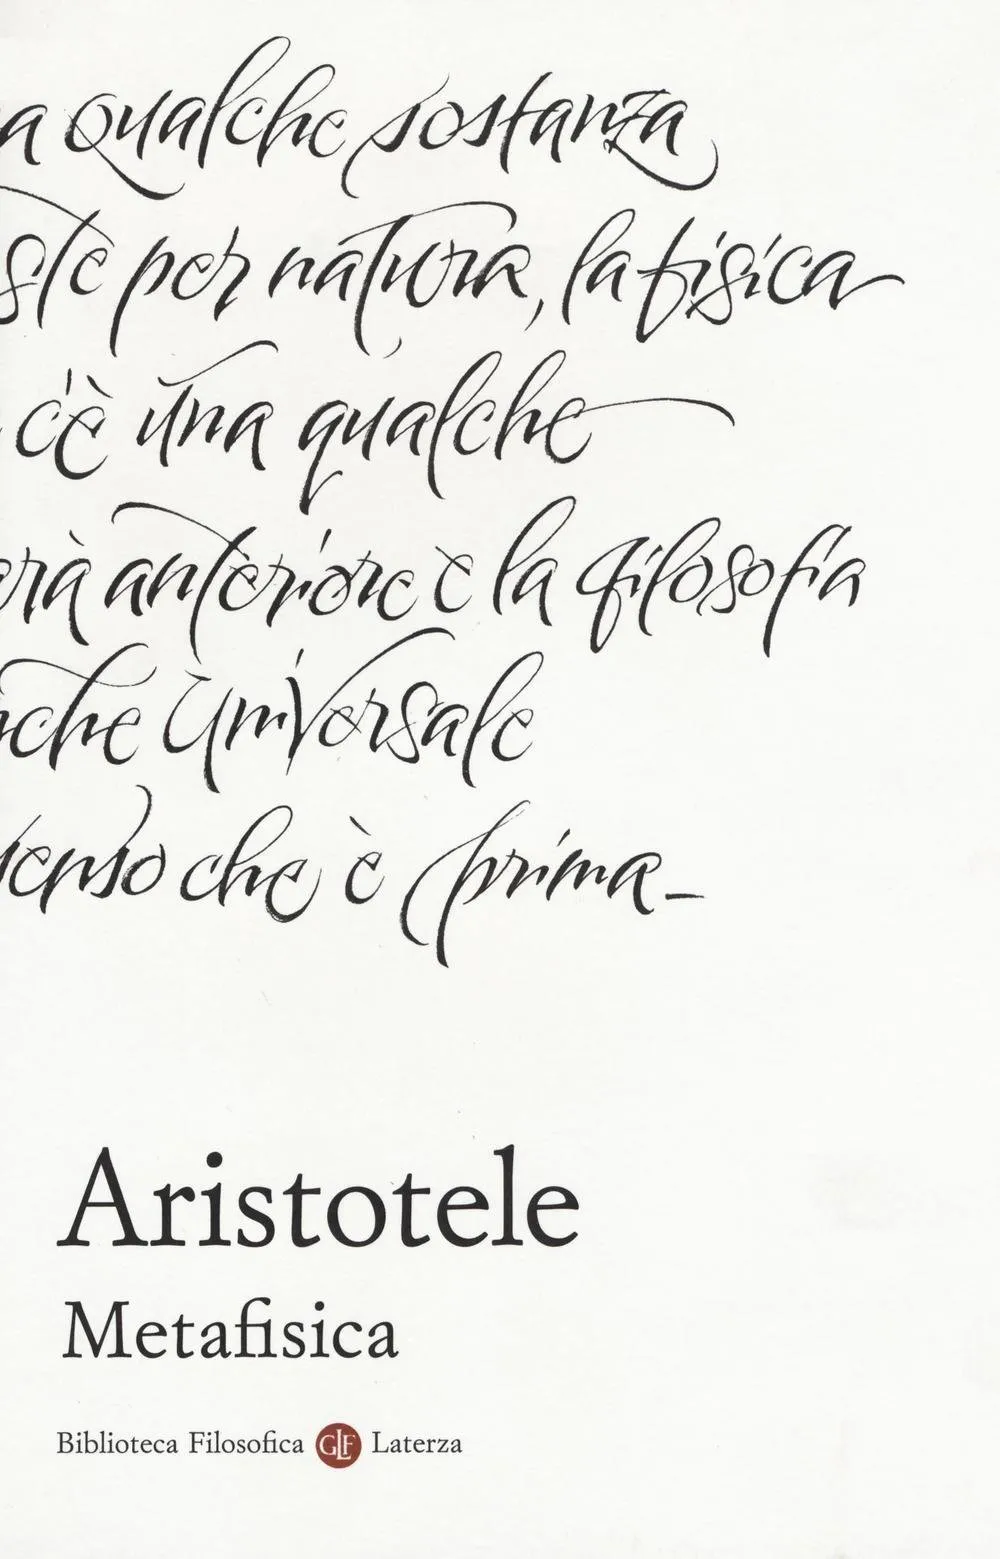 a qualche sostanza
ste per natura, la fisica
c'è una qualche
rà anteriore e la filosofia
che universale
senso che è prima_
Aristotele
Metafisica
Biblioteca Filosofica GLF Laterza